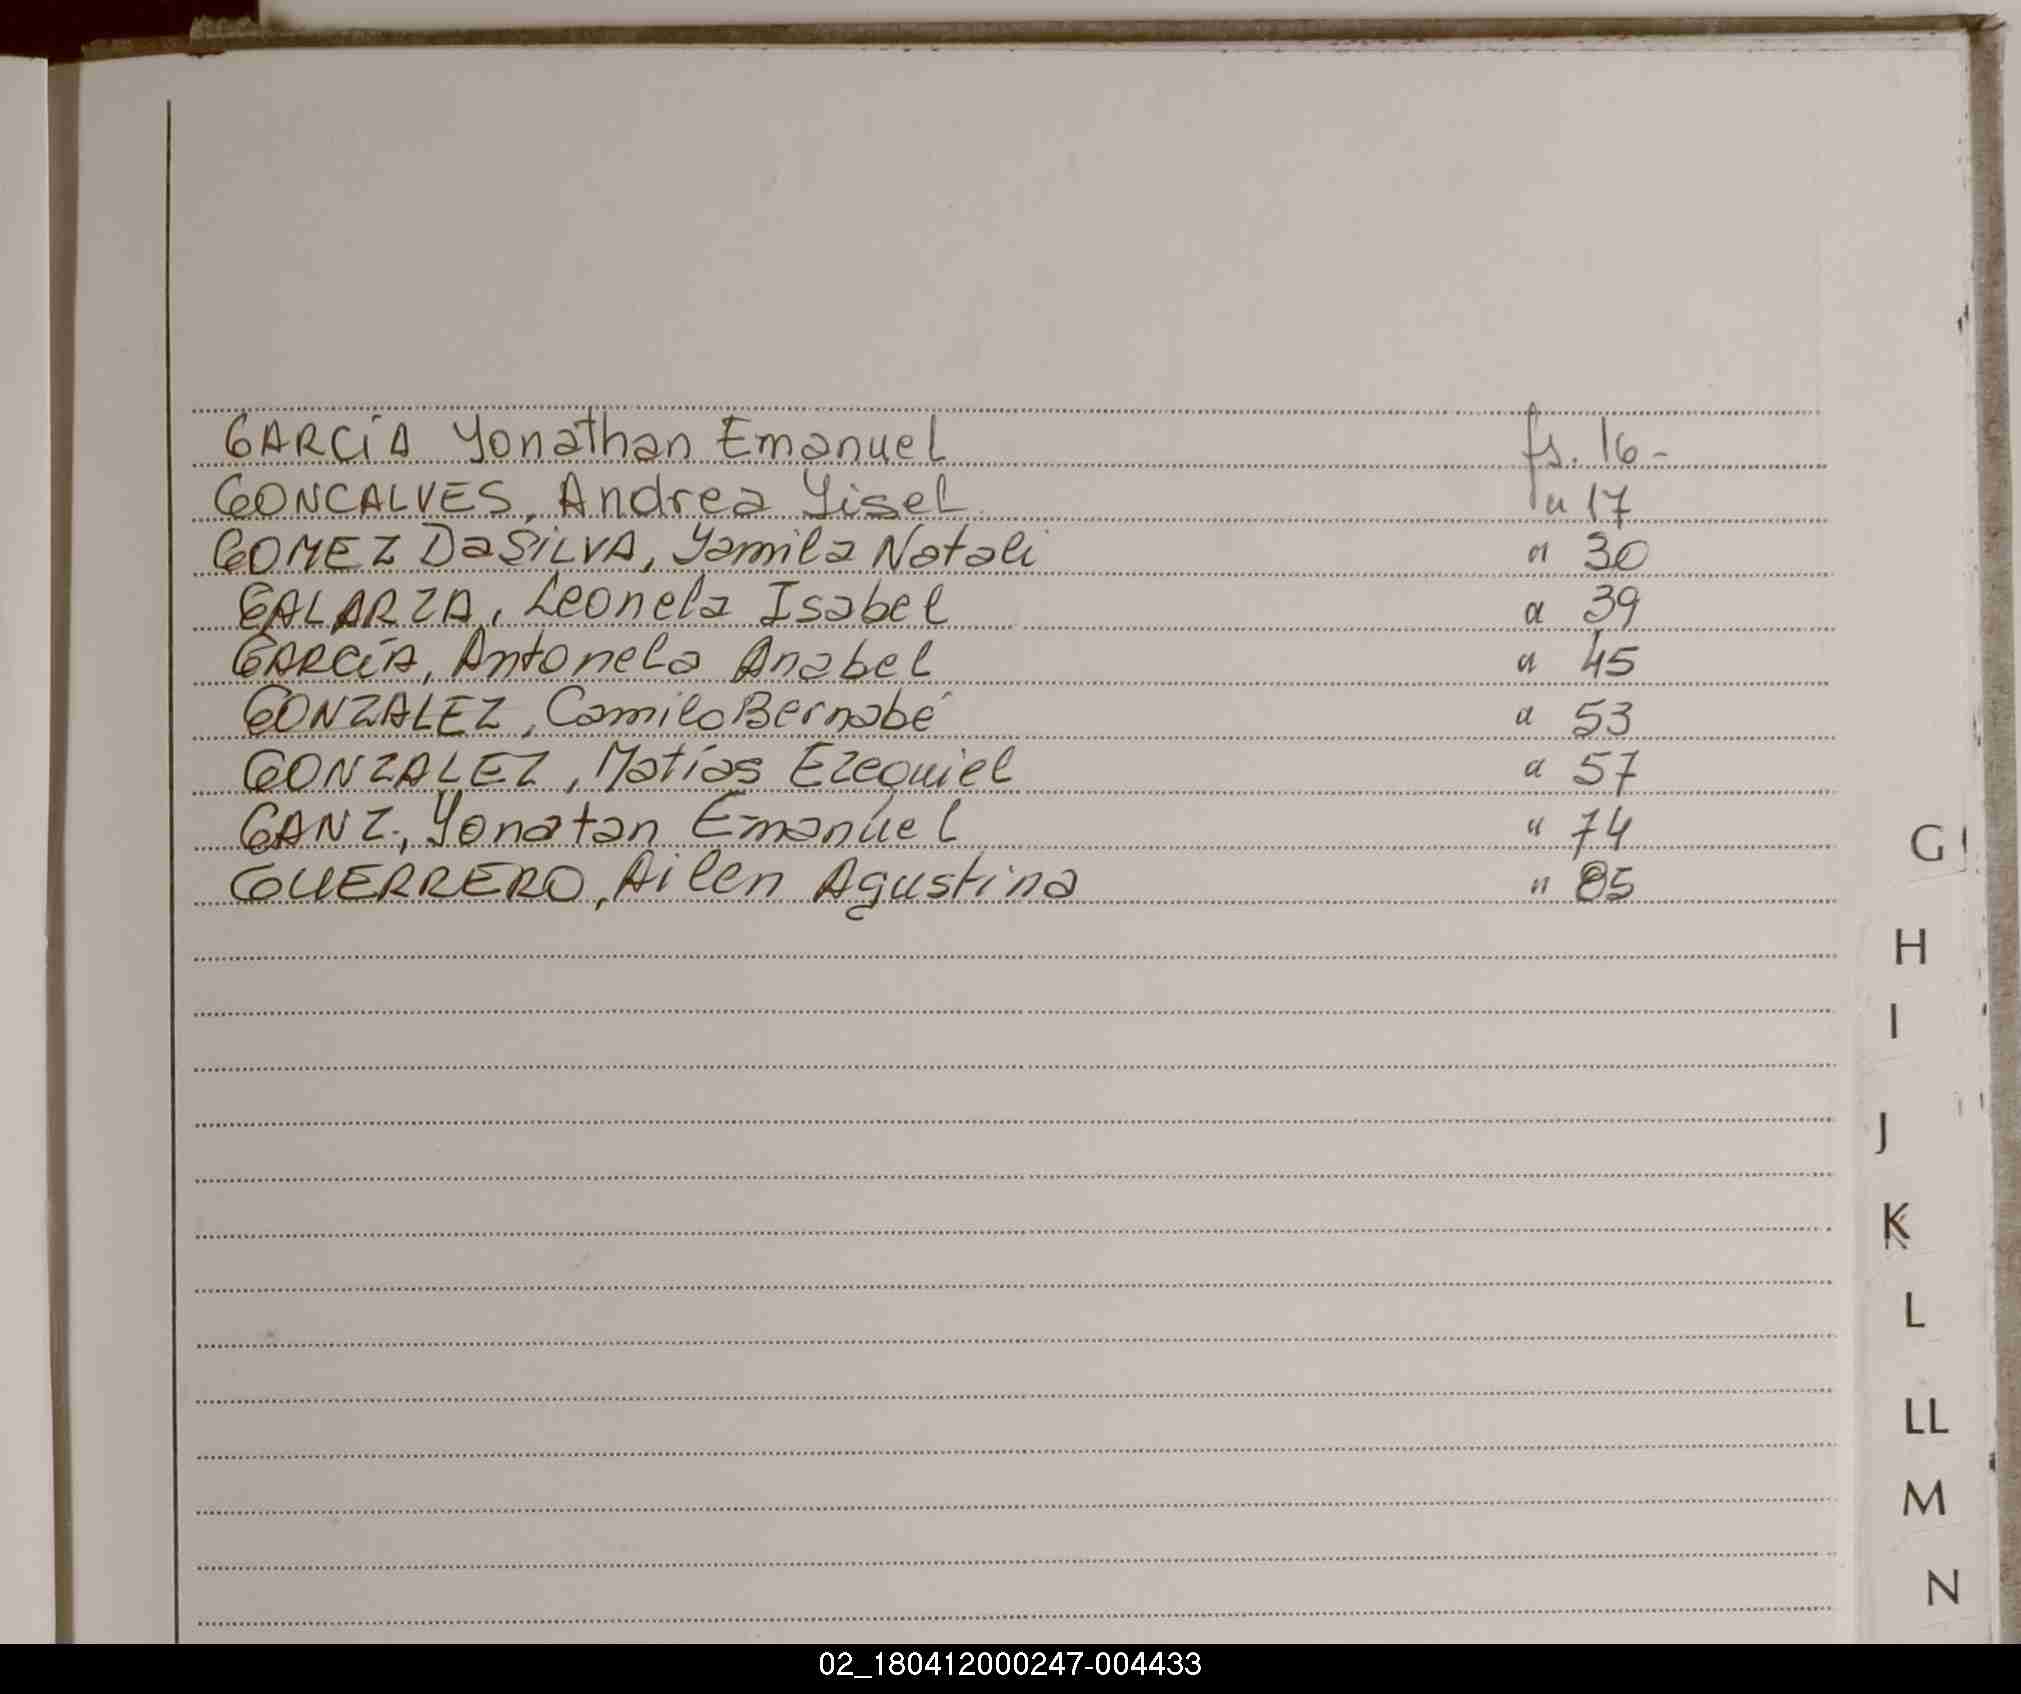 GARCÍA Yonathan Emanuel fs. 16-
GONCALVES, Andrea Yisel " 17
GOMEZ DaSILVA, Yamila Natali " 30
GALARZA, Leonela Isabel " 39
GARCÍA, Antonela Anabel " 45
GONZALEZ, Camilo Bernabé " 53
GONZALEZ, Matías Ezequiel " 57
GANZ, Yonatan Emanuel " 74
GUERRERO, Ailen Agustina " 85
G
H
I
J
K
L
LL
M
N
02_180412000247-004433